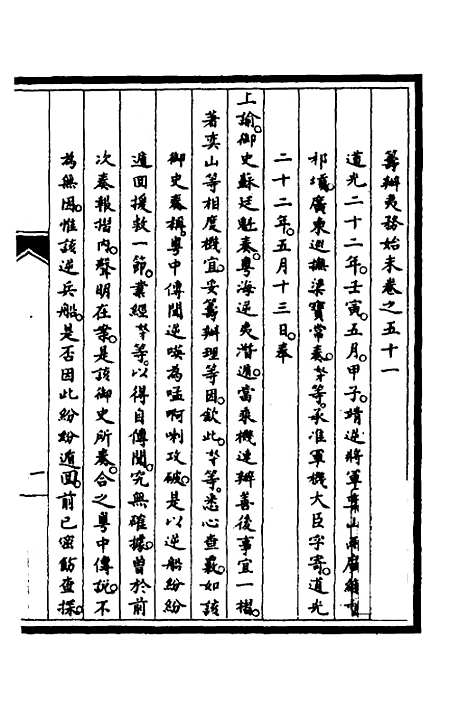 籌辦夷務始末卷之五十一
道光二十二年。壬寅。五月。甲子。靖逆將軍奕山兩廣總督
祁𡎴。廣東巡撫梁寶常。奏。奴才等。承准軍機大臣字寄。道光
二十二年。五月十三日。奉
上諭。御史蘇廷魁奏。粵海逆夷潛遁。當乘機速辦善後事宜一摺。
著奕山等相度機宜。妥籌辦理等因。欽此。奴才等。悉心查覈。如該
御史奏稱。粵中傳聞逆𠸄為孟啊喇攻破。是以逆船紛紛
遁回援救一節。業經奴才等。以得自傳聞。究無確據。曾於前
次奏報摺內。聲明在案。是該御史所奏。合之粵中傳說。不
為無因。惟該逆兵船。是否因此紛紛遁回。前已密飭查探。
一